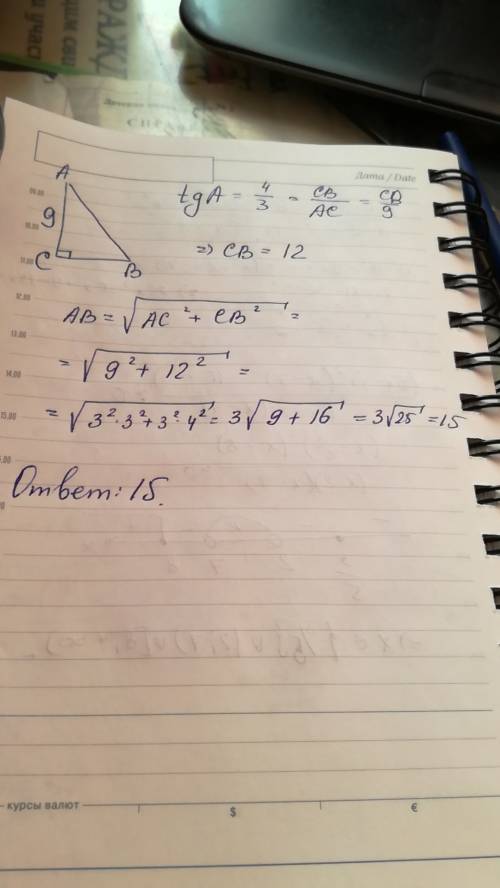 Дата / Date
A
9
C
B
tg A = 4/3 = CB/AC = CB/9
=> CB = 12
AB = √(AC² + CB²) =
= √(9² + 12²) =
= √(3²·3² + 3²·4²) = 3√(9 + 16) = 3√25 = 15
Ответ: 15.
09.00
10.00
11.00
12.00
13.00
14.00
15.00
курсы валют
$
€